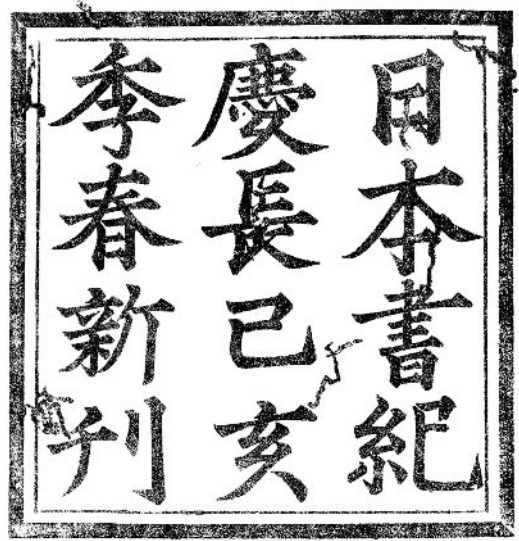 日本書紀
慶長己亥
季春新刊